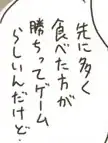 先に多く
食べた方が
勝ちってゲーム
らしいんだけど・